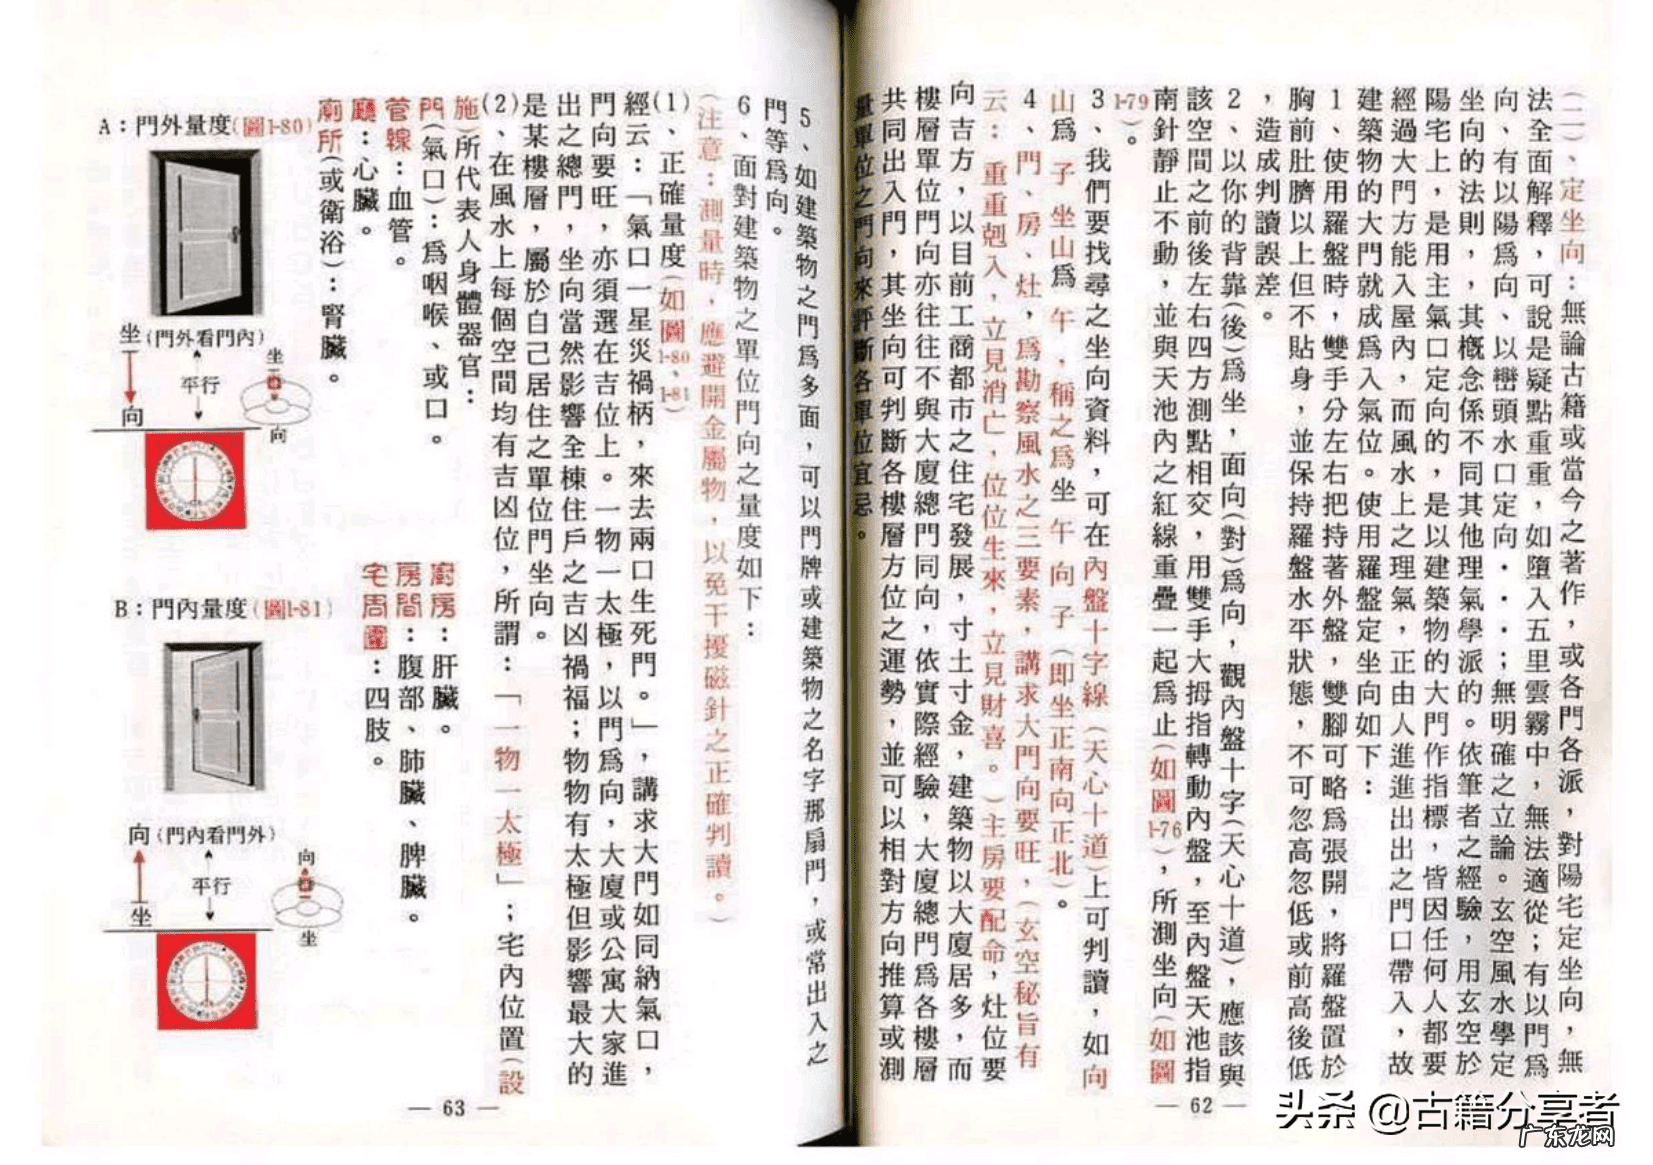 (二)、定坐向:無論古籍或當今之著作,或各門各派,對陽宅定坐向,無
法全面解釋,可說是疑點重重,如墮入五里雲霧中,無法適從;有以門為
向、有以陽為向、以巒頭水口定向...;無明確之立論。玄空風水學定
坐向的法則,其概念係不同其他理氣學派的。依筆者之經驗,用玄空於
陽宅上,是用主氣口定向的,是以建築物的大門作指標,皆因任何人都要
經過大門方能入屋內,而風水上之理氣,正由人進進出出之門口帶入,故
建築物的大門就成為入氣位。使用羅盤定坐向如下:
1、使用羅盤時,雙手分左右把持著外盤,雙腳可略為張開,將羅盤置於
胸前肚臍以上但不貼身,並保持羅盤水平狀態,不可忽高忽低或前高後低
,造成判讀誤差。
2、以你的背靠(後)為坐,面向(對)為向,觀內盤十字(天心十道),應該與
該空間之前後左右四方測點相交,用雙手大拇指轉動內盤,至內盤天池指
南針靜止不動,並與天池內之紅線重疊一起為止(如圖1-76),所測坐向(如圖
1-79)。
3、我們要找尋之坐向資料,可在內盤十字線(天心十道)上可判讀,如向
山為子坐山為午,稱之為坐午向子(即坐正南向正北)。
4、門、房、灶,為勘察風水之三要素,講求大門向要旺,(玄空秘旨有
云:重重剋入,立見消亡,位位生來,立見財喜。)主房要配命,灶位要
向吉方,以目前工商都市之住宅發展,寸土寸金,建築物以大廈居多,而
樓層單位門向亦往往不與大廈總門同向,依實際經驗,大廈總門為各樓層
共同出入門,其坐向可判斷各樓層方位之運勢,並可以相對方向推算或測
量單位之門向來評斷各單位宜忌。
— 62 —
5、如建築物之門為多面,可以門牌或建築物之名字那扇門,或常出入之
門等為向。
6、面對建築物之單位門向之量度如下:
(注意:測量時,應避開金屬物,以免干擾磁針之正確判讀。)
(1)、正確量度(如圖1-80、1-81)
經云:「氣口一星災禍柄,來去兩口生死門。」,講求大門如同納氣口,
門向要旺,亦須選在吉位上。一物一太極,以門為向,大廈或公寓大家進
出之總門,坐向當然影響全棟住戶之吉凶禍福;物物有太極但影響最大的
是某樓層,屬於自己居住之單位門坐向。
(2)、在風水上每個空間均有吉凶位,所謂:「一物一太極」;宅內位置(設
施)所代表人身體器官:
門(氣口):為咽喉、或口。
管線:血管。
廳:心臟。
廁所(或衛浴):腎臟。
廚房:肝臟。
房間:腹部、肺臟、脾臟。
宅周圍:四肢。
A:門外量度(圖1-80)
坐(門外看門內)
向
平行
坐
向
B:門內量度(圖1-81)
向(門內看門外)
坐
平行
向
坐
— 63 —
头条 @古籍分享者
广东龙网